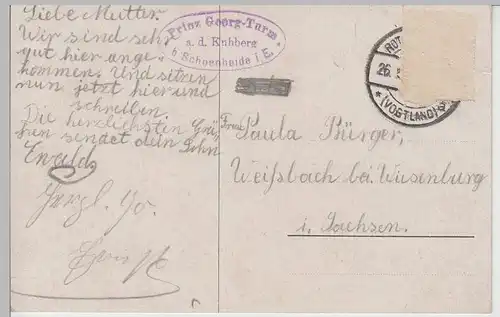 Liebe Mutter.
Wir sind sehr
gut hier ange-
kommen. Und sitzen
nun jetzt hier und
schreiben.
Die herzlichsten Grü-
ßen sendet dein Sohn
Ewald.
Prinz Georg-Turm
a. d. Kuhberg
b Schoenheide i. E.
ROT
26
* (VOGTLAND)
Frau Paula Thürger,
Weißbach bei Wiesenburg
i. Sachsen.